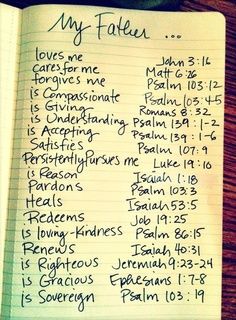 My Father ...
loves me John 3:16
cares for me Matt 6:26
forgives me Psalm 103:12
is Compassionate Psalm 103:4-5
is Giving Romans 8:32
is Understanding Psalm 139:1-2
is Accepting Psalm 139:1-6
Satisfies Psalm 107:9
Persistently Pursues me Luke 19:10
is Reason Isaiah 1:18
Pardons Psalm 103:3
Heals Isaiah 53:5
Redeems Job 19:25
is loving-Kindness Psalm 86:15
Renews Isaiah 40:31
is Righteous Jeremiah 9:23-24
is Gracious Ephesians 1:7-8
is Sovereign Psalm 103:19